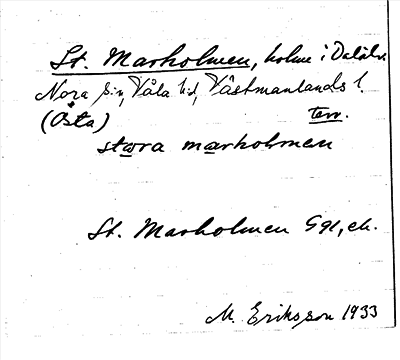 St. Marholmen, holme i Dalälv.
Nora sn, Våla hd, Västmanlands l.
(Östa) terr.
stora marholmen
St. Marholmen Ggl, ek.
M. Eriksson 1933